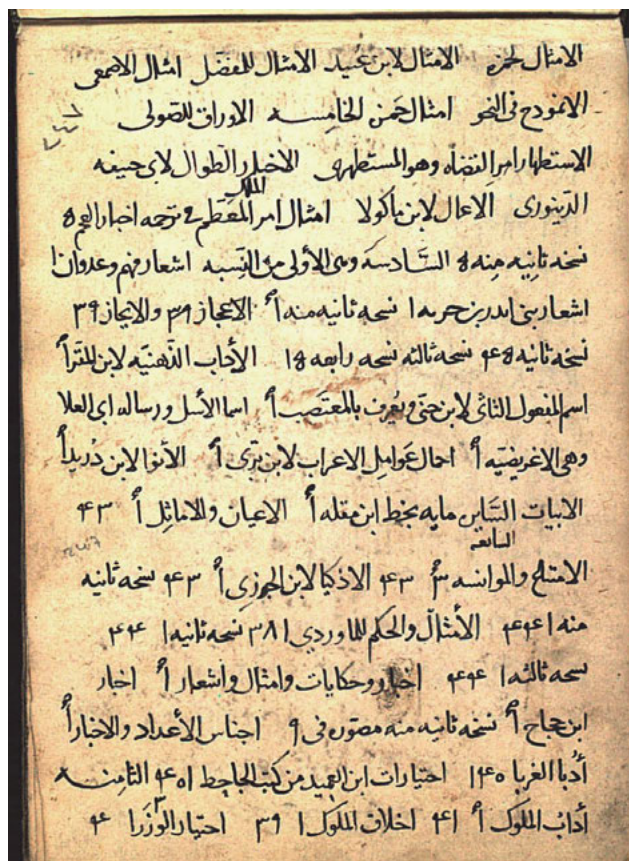 الامثال لحمزه الامثال لابن عبيد الامثال للمفضل امثال الاصمعى
الانموذج فى النحو امثال حمزه الخامسه الاوراق للصولى
الاستظهار امر القضاه وهو المستظهرى الاخبار الطوال لابى حنيفه
الملك
الدينورى الاكمال لابن ماكولا امثال امر المعظم فى ترجمه اخبار العجم
نسخه ثانيه منه السادسه وهى الأولى من النسبه اشعار فهم وعدوان ا
اشعار بنى نسخه ثانيه منه أ الاعجاز ٣٩ والايجاز ٣٩
نسخه ثانيه نسخه ثالثه نسخه رابعه الأداب الذهنيه لابن المقرأ
اسم المفعول الثانى لابن جنى ويعرف بالمغتصب أ اسما الأسل ورساله ابى العلا
وهى الاغريضيه أ اكمال عوامل الاعراب لابن برى أ الأنوا لابن دريد أ
الابيات مايه بخط ابن مقله أ الاعيان والاماثل أ ۴۳
السابعه
الامتاع والموانسه أ ۴۳ الاذكيا لابن الجوزى أ ۴۳ نسخه ثانيه
منه ا ۴۴ الأمثال والحكم للماوردى ا ٣٨ نسخه ثانيه ا ۴۴
نسخه ثالثه ا ۴۴ اخبار وحكايات وامثال واشعار أ اخبار
ابن حجاج أ نسخه ثانيه منه مصوره فى ٩ اجناس الأعداد والاخبار أ
أدبا الغربا احتيارات ابن العميد من كتب الجاحظ الثامنه
أداب الملوك أ اخلاق الملوك ا ٣٩ احتيار الوزرا ۴